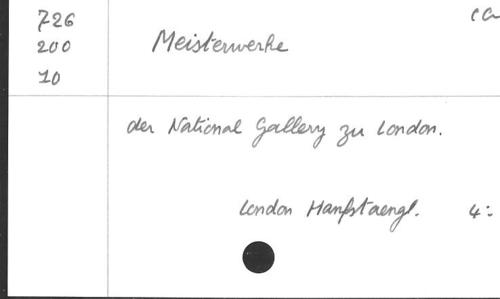 726
200
10
Meisterwerke
der National Gallery zu London.
London Hanfstaengl. 4: